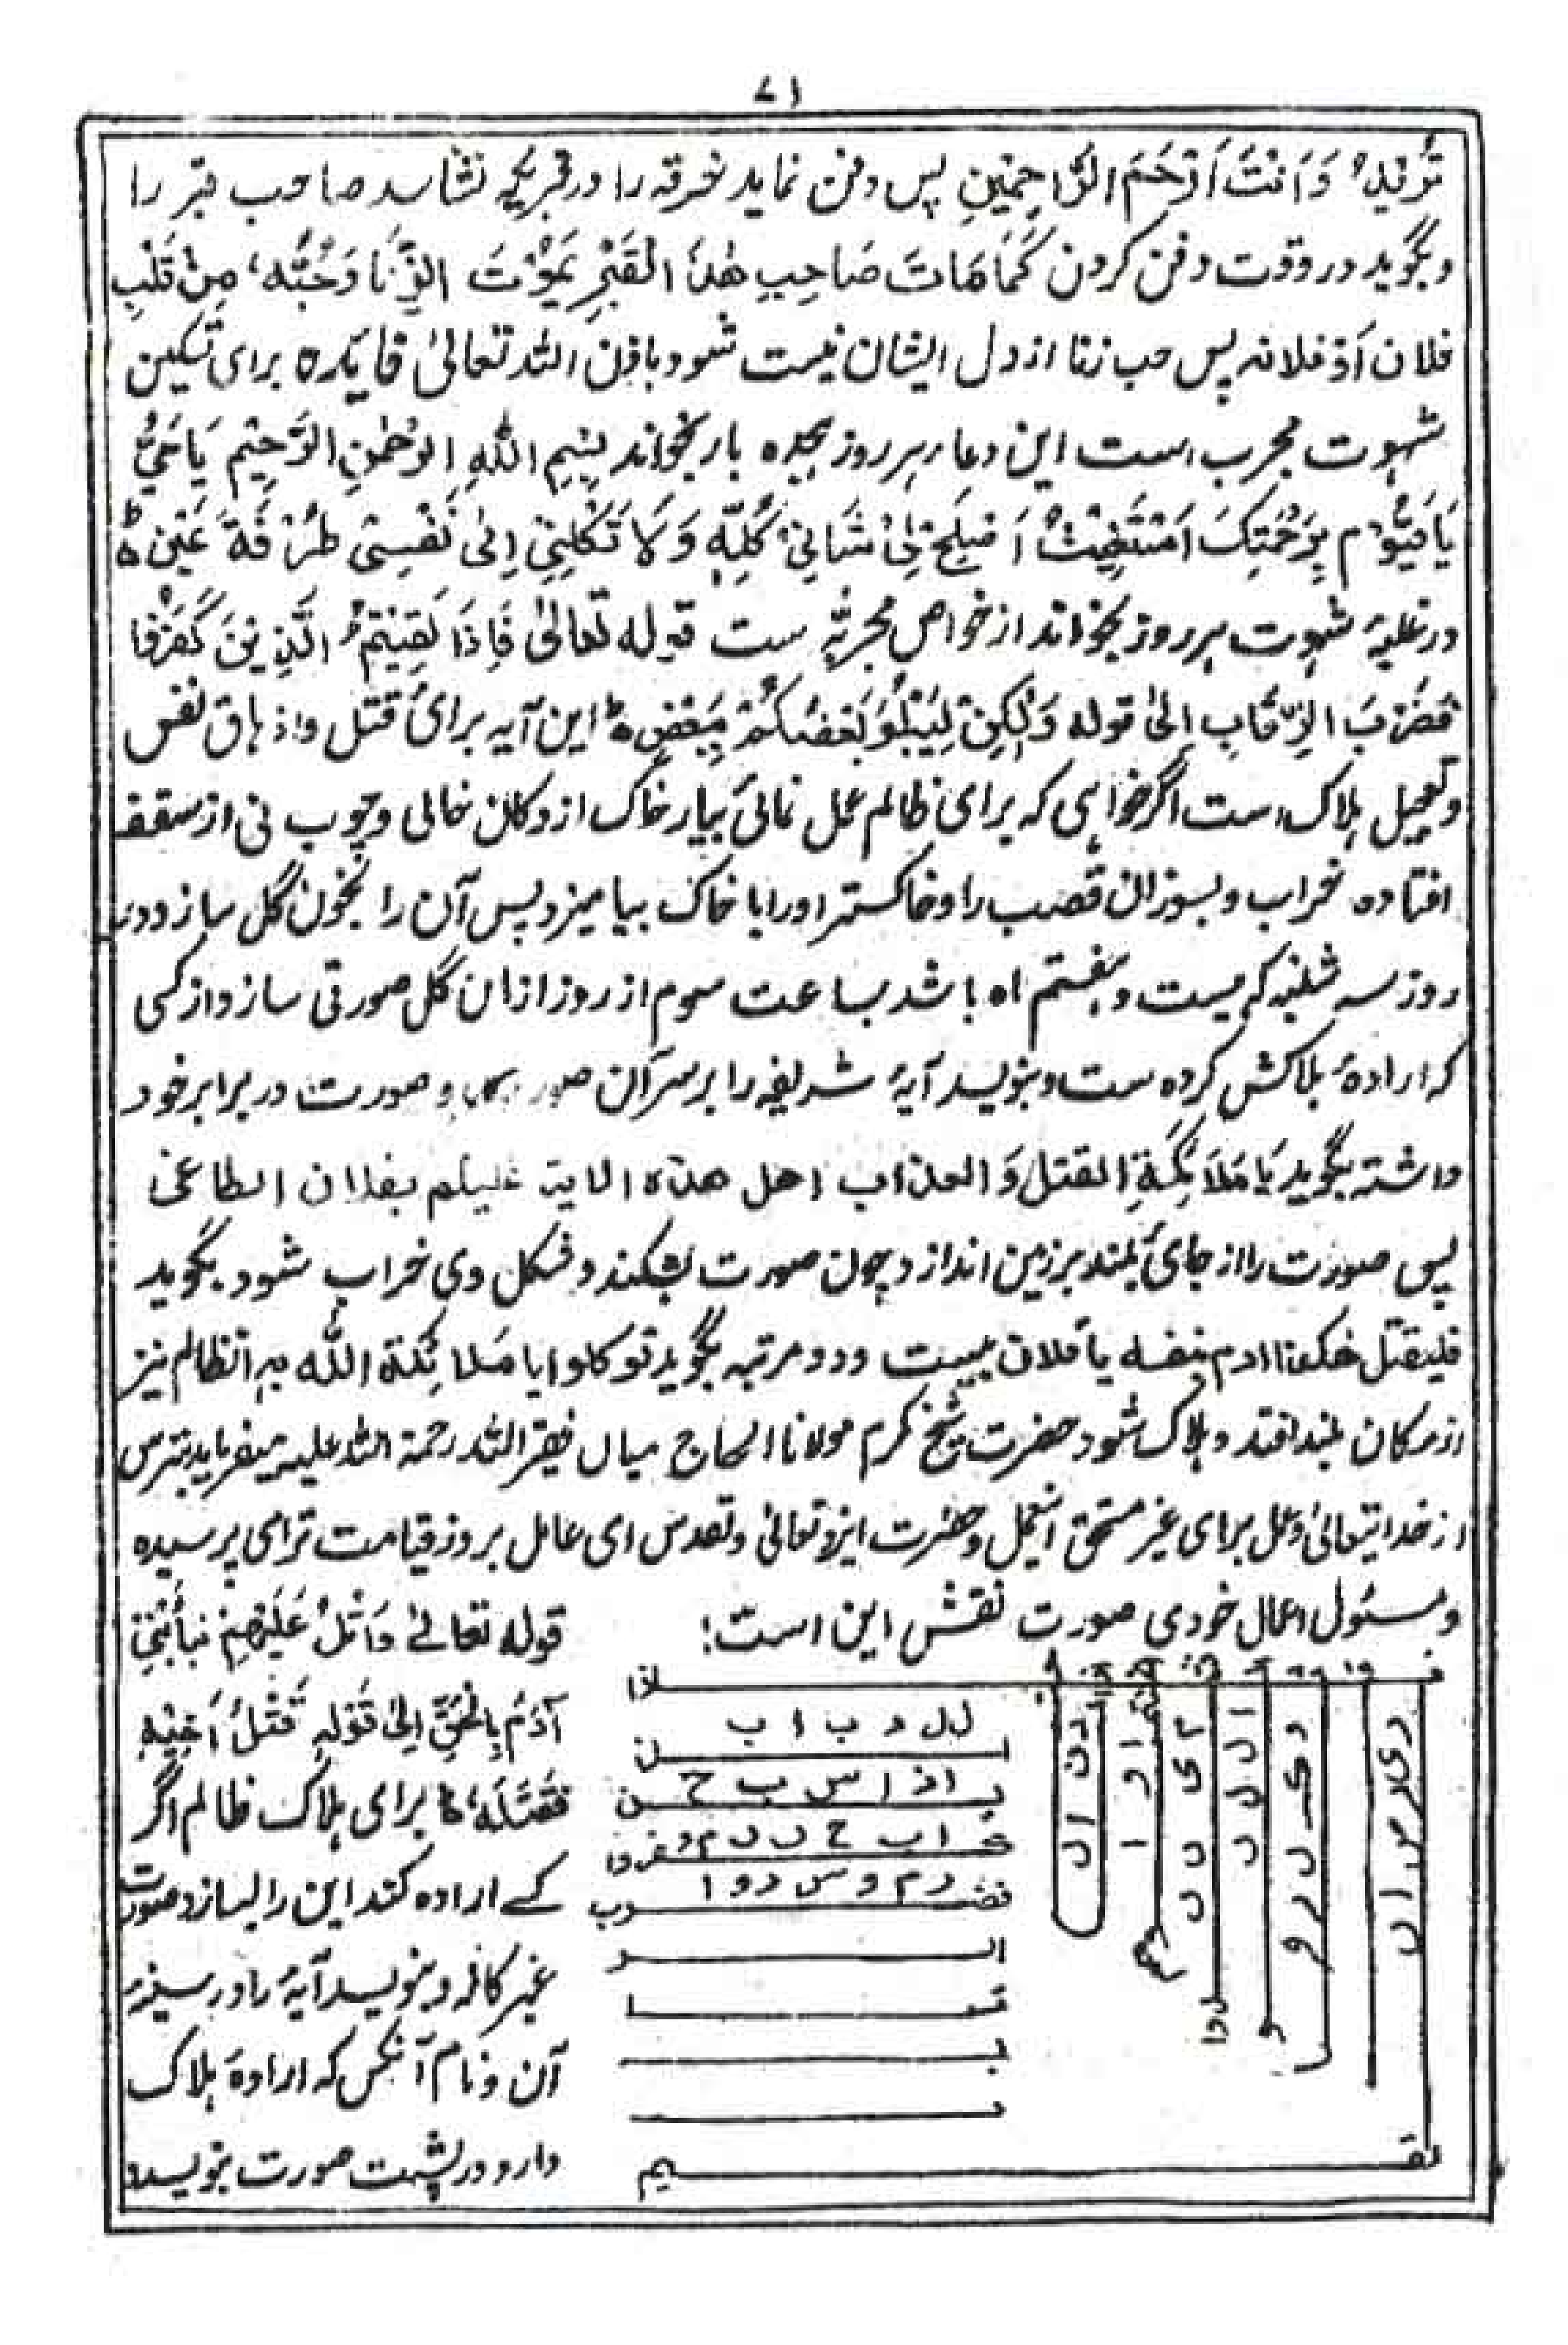 ۷۱
تُرِيْدُ وَاَنْتَ اَرْحَمَ الرَّاحِمِيْنِ پس دفن نماید خرقه را در قبریکه نشاسد صاحب قبر را
و بگوید در وقت دفن کردن کَمَا مَاتَ صَاحِبِ هٰذَا الْقَبْرِ يَمُوْتَ الزِّنَا وَحُبُّه، مِنْ قَلْبِ
فلان اَوْ فلانه پس حب زنا از دل ایشان نیست شود باذن الله تعالیٰ فایده برای تسکین
شهوت مجرب است این دعا هر روز هجده بار بخواند بِسْمِ اللّٰهِ الرَّحْمٰنِ الرَّحِيْمِ يَا حَيُّ
يَا قَيُّوْم بِرَحْمَتِكَ اَسْتَغِيْثُ اَصْلِحْ لِىْ شَانِىْ كُلِّهٖ وَلَا تَكِلْنِىْ اِلىٰ نَفْسِىْ طَرْفَةَ عَيْنٍ ط
در غلبهٔ شهوت هر روز بخواند از خواص مجربه ست قوله تعالىٰ فَاِذَا لَقِيْتُمُ الَّذِيْنَ كَفَرُوْا
فَضَرْبَ الرِّقَابِ اِلىٰ قوله وَلٰكِنْ لِيَبْلُوَ بَعْضَكُمْ بِبَعْضٍ ط این آیه برای قتل و اذهاق نفس
و تعجیل هلاک است اگر خواهی که برای ظالم عمل نمائی بیار خاک از دکان خالی و چوب نی از سقف
افتاده خراب و بسوزان قصب را و خاکستر او را با خاک بیامیزد پس آن را بخون گل سازد در
روز سه شنبه که بیست و هفتم ماه باشد بساعت سوم از روز ازان گل صورتی سازد از کسی
که ارادهٔ هلاکش کرده ست و بنویسد آیهٔ شریفه را بر سر آن صورت و صورت در برابر خود
داشته بگوید يَا مَلَائِكَةِ القتل وَ العذاب اهل هذه الاية عليلم بفلان الطاغى
پس صورت را از جای بلند بر زمین اندازد چون صورت بشکند و شکل وی خراب شود بگوید
فليقتل هكذا ادم بنفسه يا فلان بیست و دو مرتبه بگوید توكلوا يا ملائكة الله بهذا الظالم نیز
از مکان بلند افتد و هلاک شود حضرت شیخ مکرم مولانا الحاج میاں فقیر الله رحمة الله علیه میفرماید بترس
از خدایتعالیٰ و عمل برای غیر مستحق اینعمل و حضرت ایزد تعالیٰ و تقدس ای عامل بروز قیامت ترا می پرسیده
و مسئول اعمال خودی صورت نقش این است؛
قوله تعالےٰ وَاتْلُ عَلَيْهِمْ نَبَاَ ابْنَىْ
آدَمَ بِالْحَقِّ اِلىٰ قَوْلِهٖ قَتْلَ اَخِيْهِ
فَقَتَلَهُ، ط برای هلاک ظالم اگر
کسے اراده کند این را بسازد صورت
غیر کافه و بنویسد آیهٔ را در سینهٔ
آن و نام آنکس که ارادهٔ هلاک
دارد در پشت صورت بنویسد
فاذا
ل ل د ب ا ب
ا ذ ا س ب ح
ع ا ب ح ل ل م د
د م و س د و ا